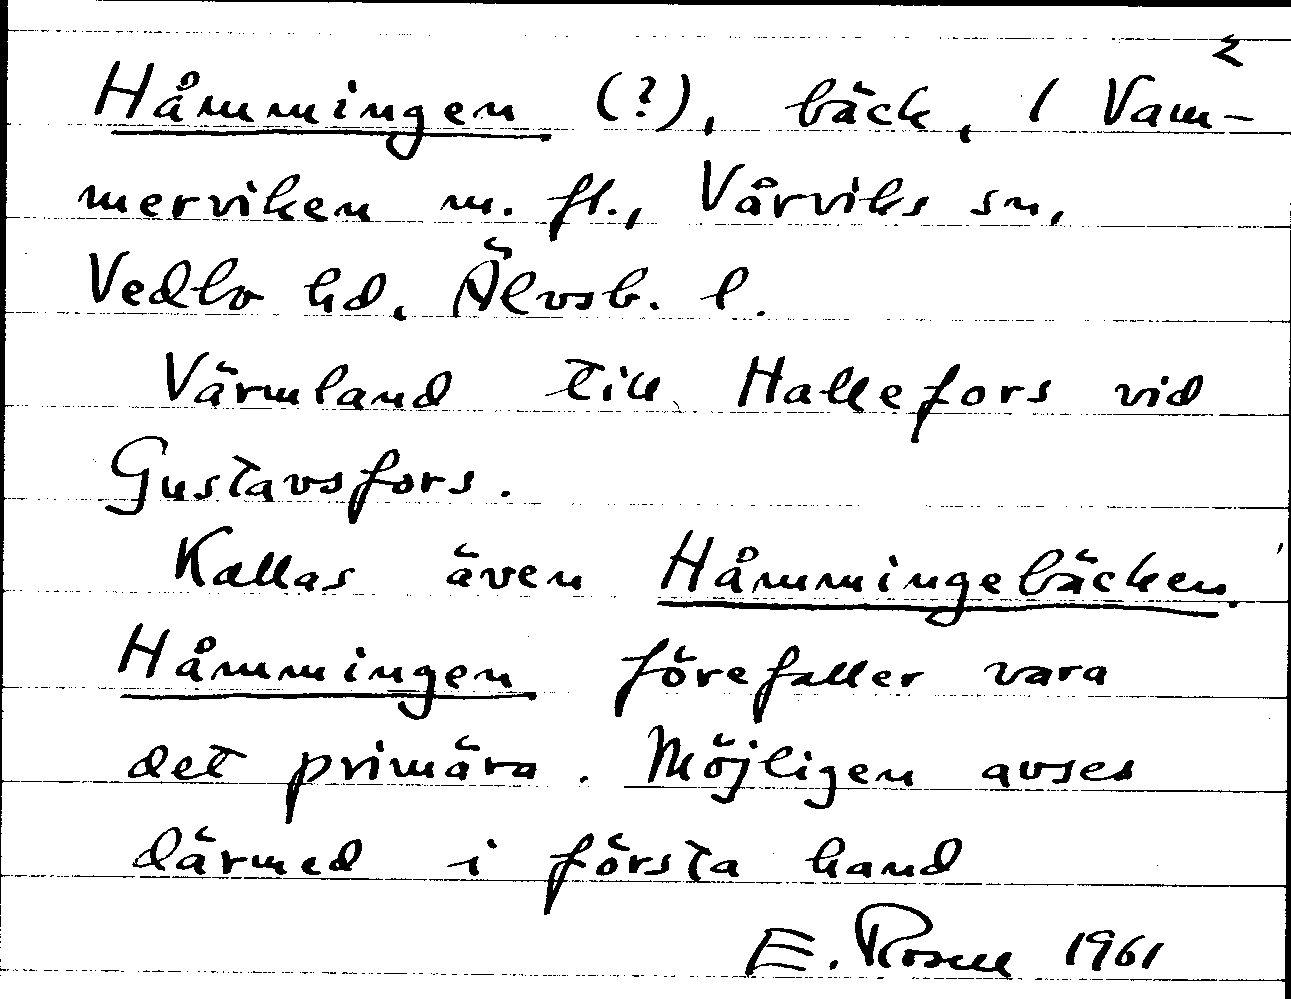 2
Håmmingen (?), bäck, / Vam-
merviken m. fl., Vårviks sn,
Vedbo hd, Älvsb. l.
Värmland till Hallefors vid
Gustavsfors.
Kallas även Håmmingebäcken.
Håmmingen förefaller vara
det primära. Möjligen avses
därmed i första hand
E. Rosell 1961